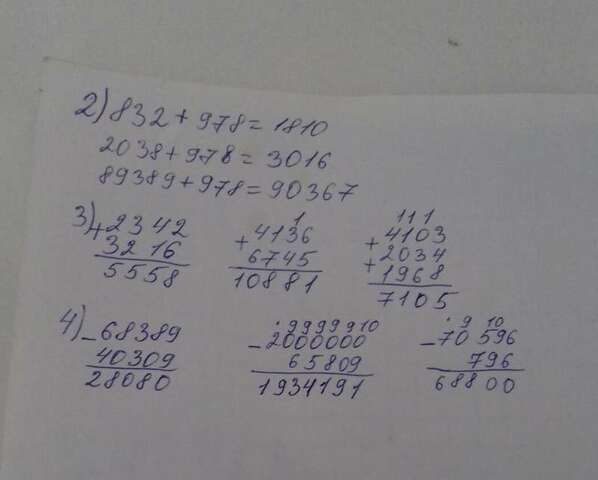 2) 832 + 978 = 1810
2038 + 978 = 3016
89389 + 978 = 90367
1 111
3) + 2342 + 4136 + 4103
3216 6745 + 2034
5558 10881 1968
7105
. 9999910 . 9 10
4) - 68389 - 2000000 - 70596
40309 65809 796
28080 1934191 68800